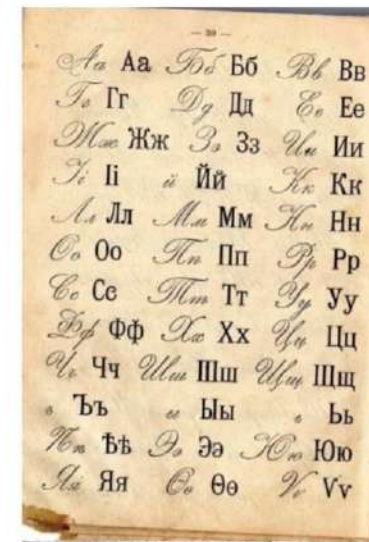 — 39 —
Аа Аа Бб Бб Вв Вв
Гг Гг Дд Дд Ее Ее
Жж Жж Зз Зз Ии Ии
Іі Іі й Йй Кк Кк
Лл Лл Мм Мм Нн Нн
Оо Оо Пп Пп Рр Рр
Сс Сс Тт Тт Уу Уу
Фф Фф Хх Хх Цц Цц
Чч Чч Шш Шш Щщ Щщ
ъ Ъъ ы Ыы ь Ьь
Ѣѣ Ѣѣ Ээ Ээ Юю Юю
Яя Яя Ѳѳ Ѳѳ Ѵѵ Ѵѵ